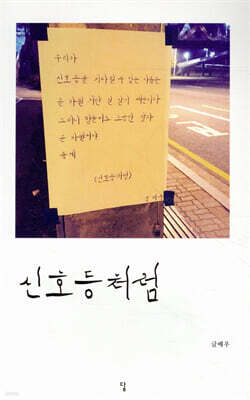 우리가
신호등을 기다릴 수 있는 이유는
곧 바뀔 거란 걸 알기 때문이다
그러니 힘들어도 조금만 참자
곧 바뀔거야
좋게
(신호등처럼)
글배우
신호등처럼
글배우
달